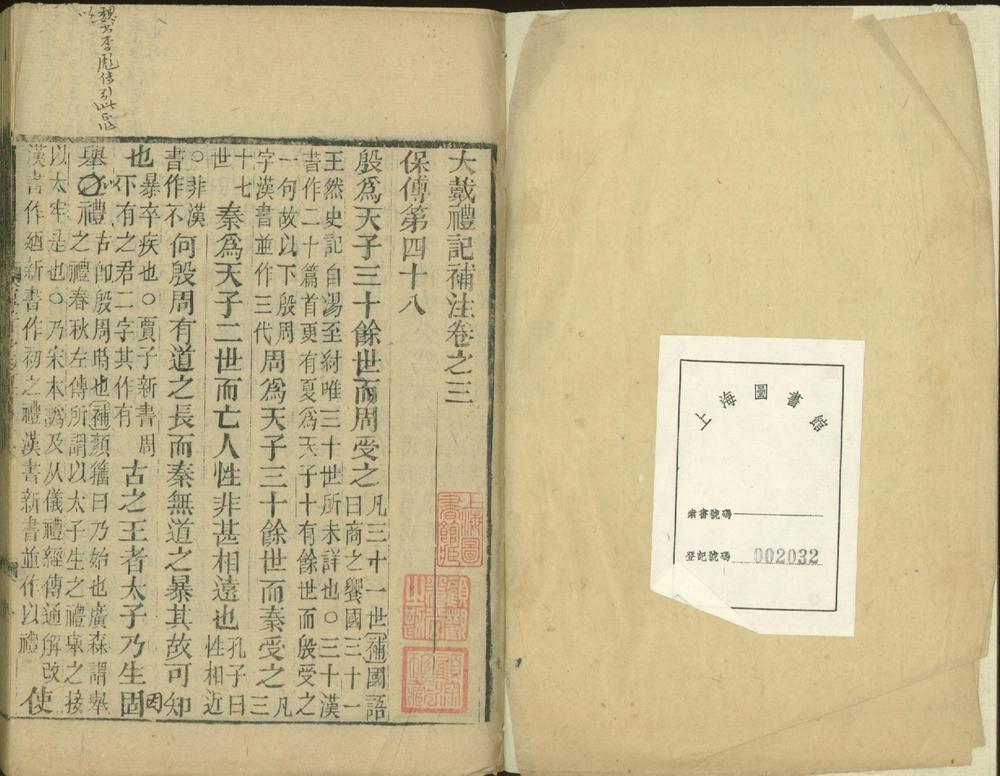 上海圖書館
索書號碼
登記號碼 002032
大戴禮記補注卷之三
保傅第四十八
殷爲天子三十餘世而周受之凡三十一世補國語
曰商之饗國三十一
王然史記自湯至紂唯三十世所未詳也○三十漢
書作二十篇首更有夏爲天子十有餘世而殷受之
一句故以下殷周
字漢書並作三代周爲天子三十餘世而秦受之凡
三
十七
世秦爲天子二世而亡人性非甚相遠也孔子曰
性相近
○非漢
書作不何殷周有道之長而秦無道之暴其故可知
也暴卒疾也○賈子新書周
下有之君二字其作有古之王者太子乃生固因
舉以禮古卽殷周時也補顏籀曰乃始也廣森謂舉
之禮春秋左傳所謂以太子生之禮舉之接
以太牢是也○乃宋本譌及从儀禮經傳通解改
漢書作迺新書作初之禮漢書新書並作以禮使
魏書李彪傳引此正
作以
上海圖書館藏